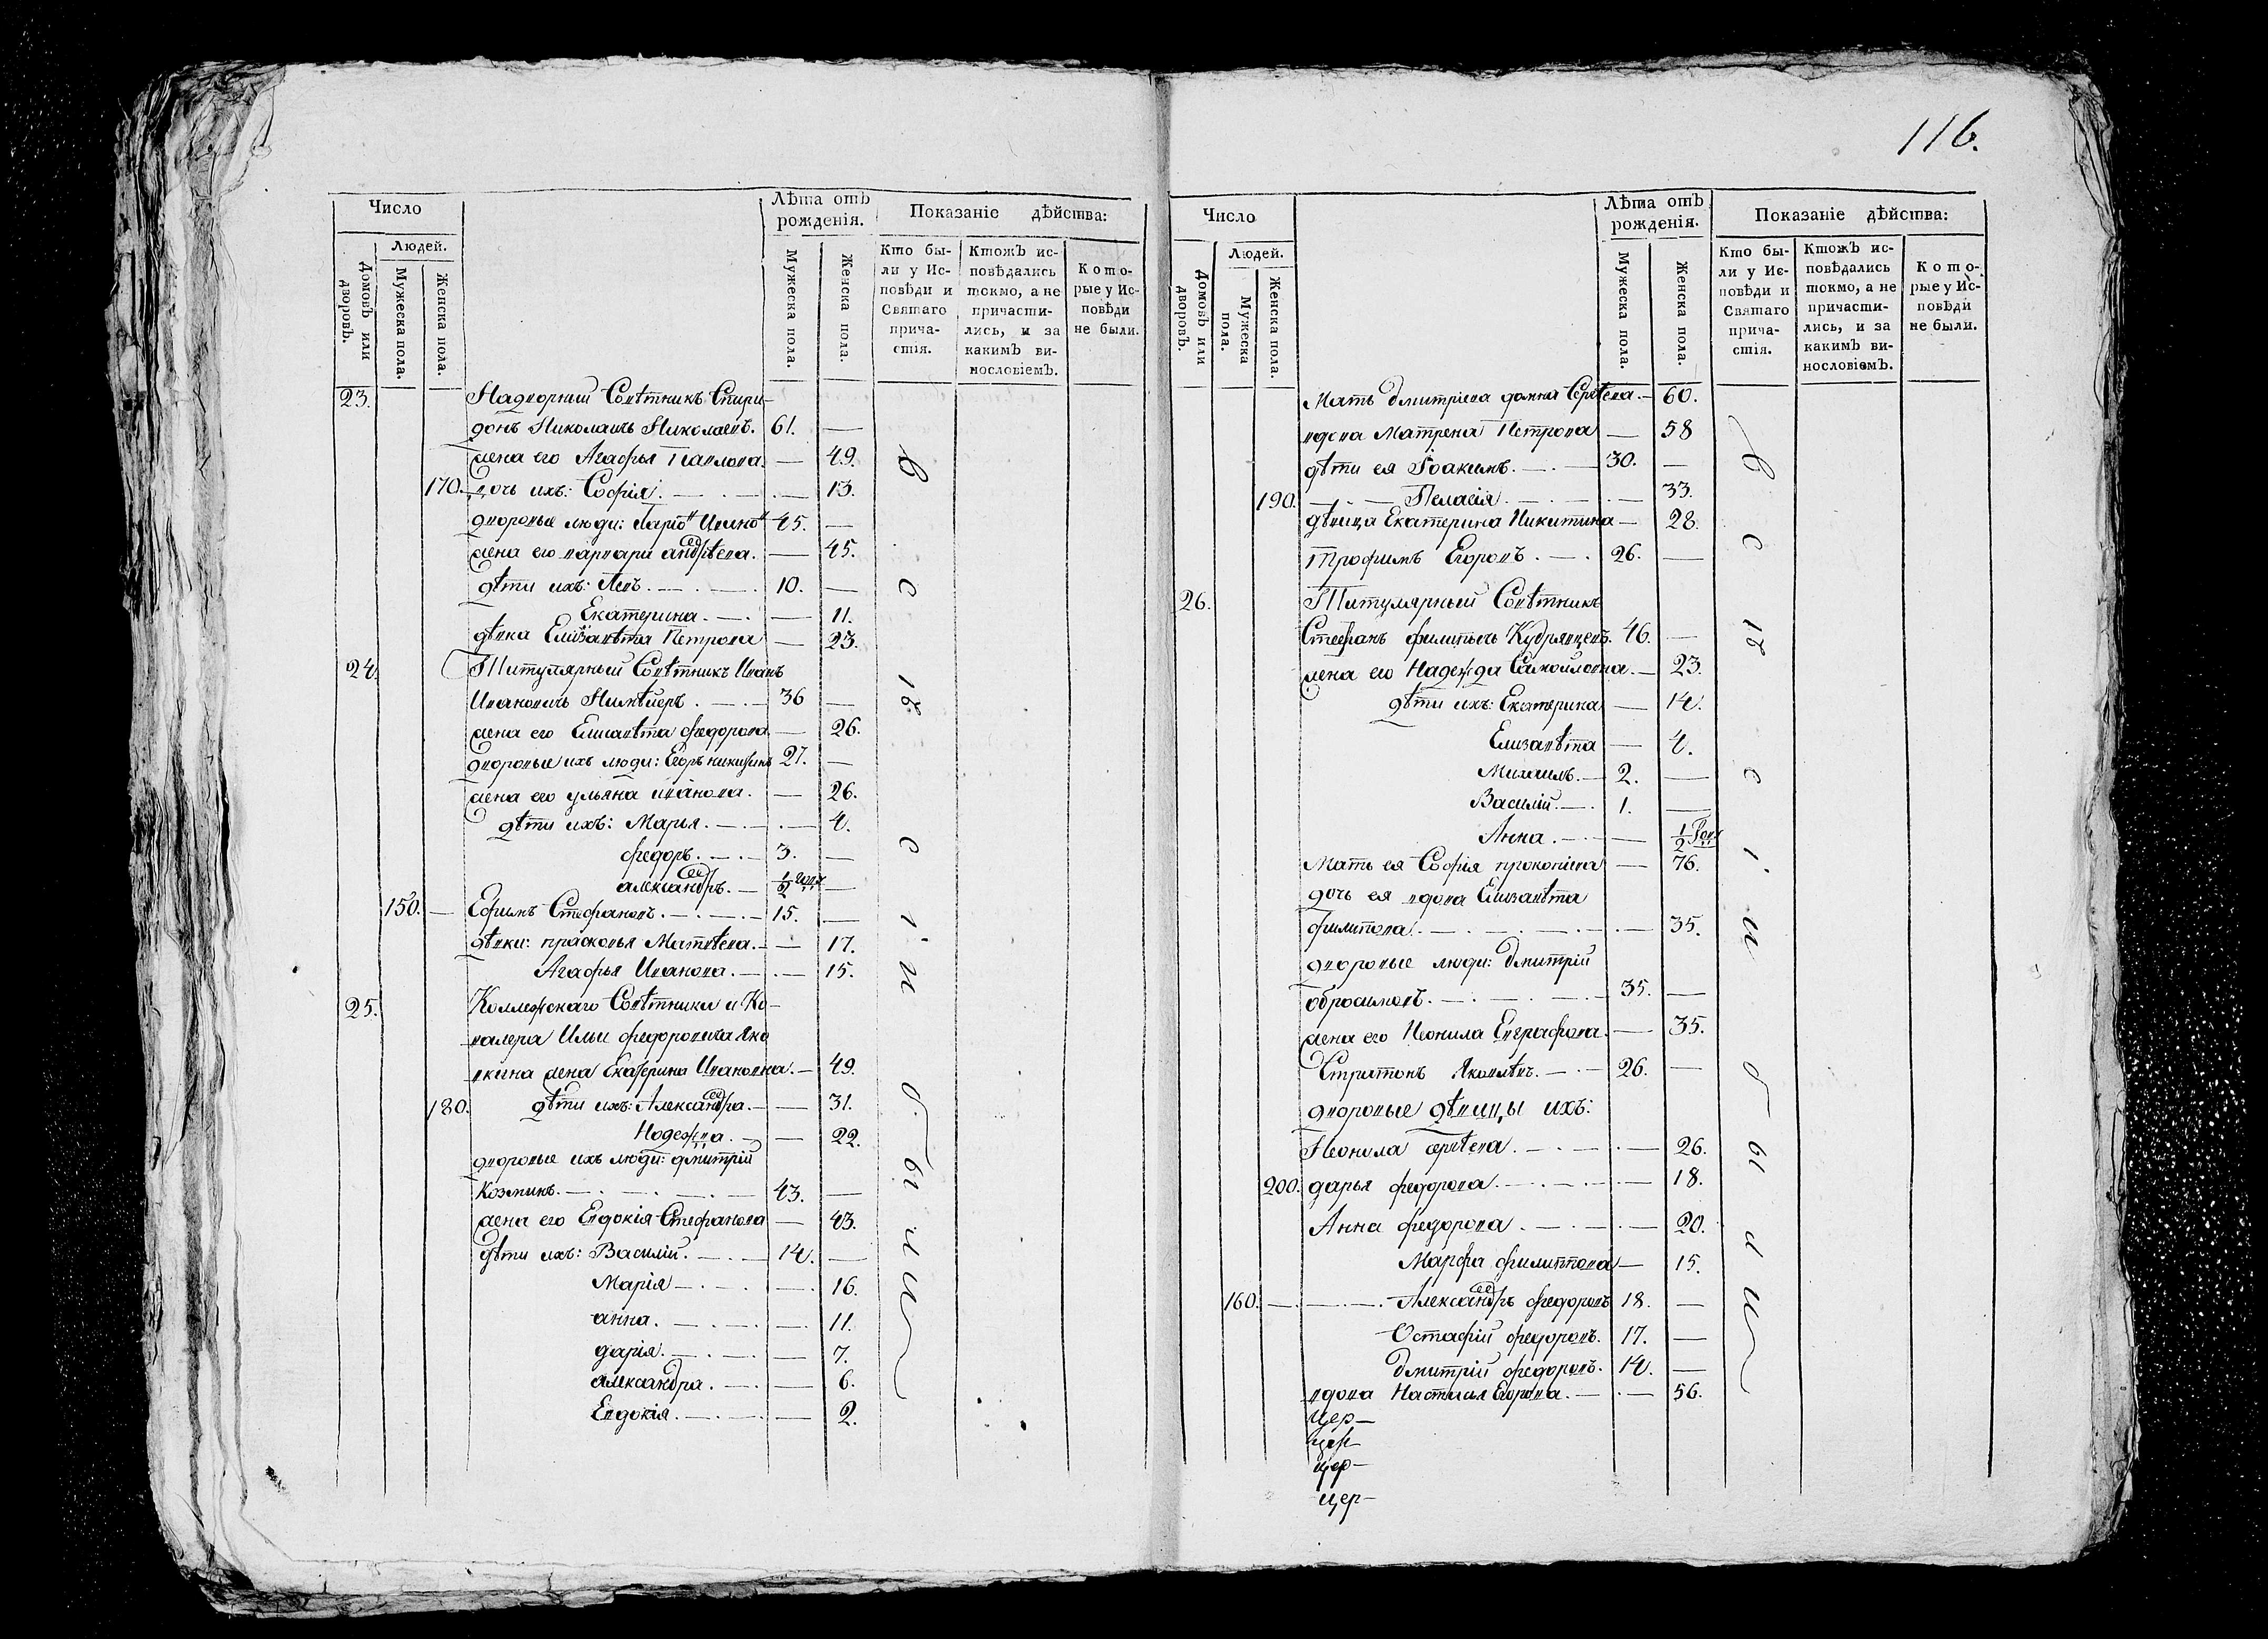 116.
Число
Лѣта отъ рожденія.
Показаніе дѣйства:
Людей.
Домовъ или дворовъ.
Мужеска пола.
Женска пола.
Мужеска пола.
Женска пола.
Кто бы-
ли у Ис-
повѣди и
Святаго
прича-
стія.
Ктожъ ис-
повѣдались
токмо, а не
причасти-
лись, и за
какимъ ви-
нословіемъ.
Кото-
рые у Ис-
повѣди
не были.
23. Надворный Совѣтникъ Спири-
донъ Николаичь Николаевъ. 61. —
жена его Агафья Павлова. — 49.
170. дочь ихъ: Софія. — 13.
дворовые люди: Ларіо" Ивано" 45. —
жена его варвара андрѣева. — 45.
дѣти ихъ: Левъ. 10. —
Екатерина. — 11.
дѣвка Елизавѣта Петрова — 23.
24. Титулярный Совѣтникъ Иванъ
Ивановичь 36 —
жена его Елисавѣта федорова. — 26.
дворовые ихъ люди: Егоръ никитинъ 27. —
жена его ульяна иванова. — 26.
дѣти ихъ: Марья. — 4.
федоръ. 3. —
александръ. 1/2 года —
150. Ефимъ Стефановъ. 15. —
дѣвки: прасковья Матвѣева. — 17.
Агафья Иванова. — 15.
25. Коллежскаго Совѣтника и Ка-
валера Ильи федоровича Яко
вкина жена Екатерина Ивановна. — 49.
180. дѣти ихъ: Александра. — 31.
Надежда. — 22.
дворовые ихъ люди: дмитрій
Козминъ. 43. —
жена его Евдокія Стефанова — 43.
дѣти ихъ: Василій. 14. —
Марія — 16.
анна. — 11.
дарія. — 7.
александра. — 6.
Евдокія. — 2.
всѣ сіи были
Число
Лѣта отъ рожденія.
Показаніе дѣйства:
Людей.
Домовъ или дворовъ.
Мужеска пола.
Женска пола.
Мужеска пола.
Женска пола.
Кто бы-
ли у Ис-
повѣди и
Святаго
прича-
стія.
Ктожъ ис-
повѣдались
токмо, а не
причасти-
лись, и за
какимъ ви-
нословіемъ.
Кото-
рые у Ис-
повѣди
не были.
Мать дмитріева домна Сергѣева. — 60.
вдова Матрена Петрова — 58
дѣти ея Іоакимъ. 30. —
190. Пелагія. — 33.
дѣвица Екатерина Никитина — 28.
Трофимъ Егоровъ. 26. —
26. Титулярный Совѣтникъ
Стефанъ филипычь Кудрявцевъ. 46. —
жена его Надежда Самойловна. — 23.
дѣти ихъ: Екатерина — 14.
Елизавѣта — 4.
Михаилъ. 2. —
Василій. 1. —
Анна. — 1/2 Года
Мать ея Софія прокопіева — 76.
дочь ея вдова Елизавѣта
филипова. — 35.
дворовые люди: дмитрій
обросимовъ. 35. —
жена его Неонила Евграфова. — 35.
Стратонъ Яковлѣвъ. 26. —
дворовые дѣвицы ихъ:
Неонила сергѣева. — 26.
200. дарья федорова. — 18.
Анна федорова. — 20.
Марфа филиппова — 15.
160. Александръ федоровъ 18. —
Остафій федоровъ. 17. —
дмитрій федоровъ. 14. —
вдова Настасья Егорова. — 56.
цер—
цер—
цер—
цер—
всѣ сіи были